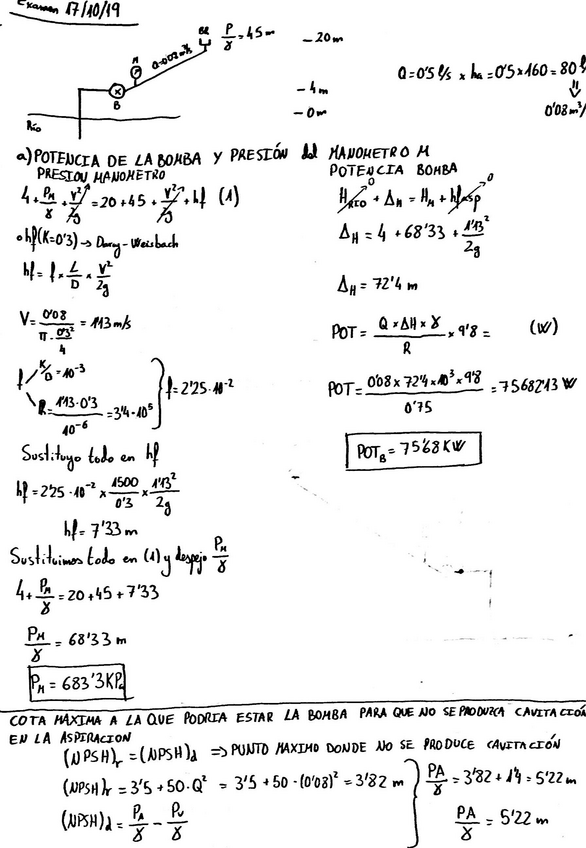 Examen 17/10/19
BR P/γ = 45 m
— 20 m
M
Q=0'08 m³/s
B
— 4 m
— 0 m
Río
Q = 0'5 l/s × ha = 0'5 × 160 = 80 l/
⇓
0'08 m³/
a) POTENCIA DE LA BOMBA Y PRESIÓN del MANOMETRO M
PRESION MANOMETRO
4 + P_M/γ + V²/2g = 20 + 45 + V²/2g + hf (1)
• hf (K=0'3) → Darcy-Weisbach
hf = f × L/D × V²/2g
V = 0'08 / (π · 0'3²/4) = 1'13 m/s
f K/D = 10⁻³
R = 1'13 · 0'3 / 10⁻⁶ = 3'4 · 10⁵
f = 2'25 · 10⁻²
Sustituyo todo en hf
hf = 2'25 · 10⁻² × 1500/0'3 × 1'13²/2g
hf = 7'33 m
Sustituimos todo en (1) y despejo P_M/γ
4 + P_M/γ = 20 + 45 + 7'33
P_M/γ = 68'33 m
P_M = 683'3 KPa
POTENCIA BOMBA
H_RIO⁰ + Δ_H = H_M + hfasp⁰
Δ_H = 4 + 68'33 + 1'13²/2g
Δ_H = 72'4 m
POT = Q × ΔH × γ / R × 9'8 = (W)
POT = 0'08 × 72'4 × 10³ × 9'8 / 0'75 = 75682'13 W
POT_B = 75'68 KW
COTA MÁXIMA A LA QUE PODRIA ESTAR LA BOMBA PARA QUE NO SE PRODUZCA CAVITACIÓN
EN LA ASPIRACION
(NPSH)r = (NPSH)d ⇒ PUNTO MAXIMO DONDE NO SE PRODUCE CAVITACIÓN
(NPSH)r = 3'5 + 50 · Q² = 3'5 + 50 · (0'08)² = 3'82 m
(NPSH)d = P_A/γ - P_V/γ
PA/γ = 3'82 + 1'4 = 5'22 m
PA/γ = 5'22 m